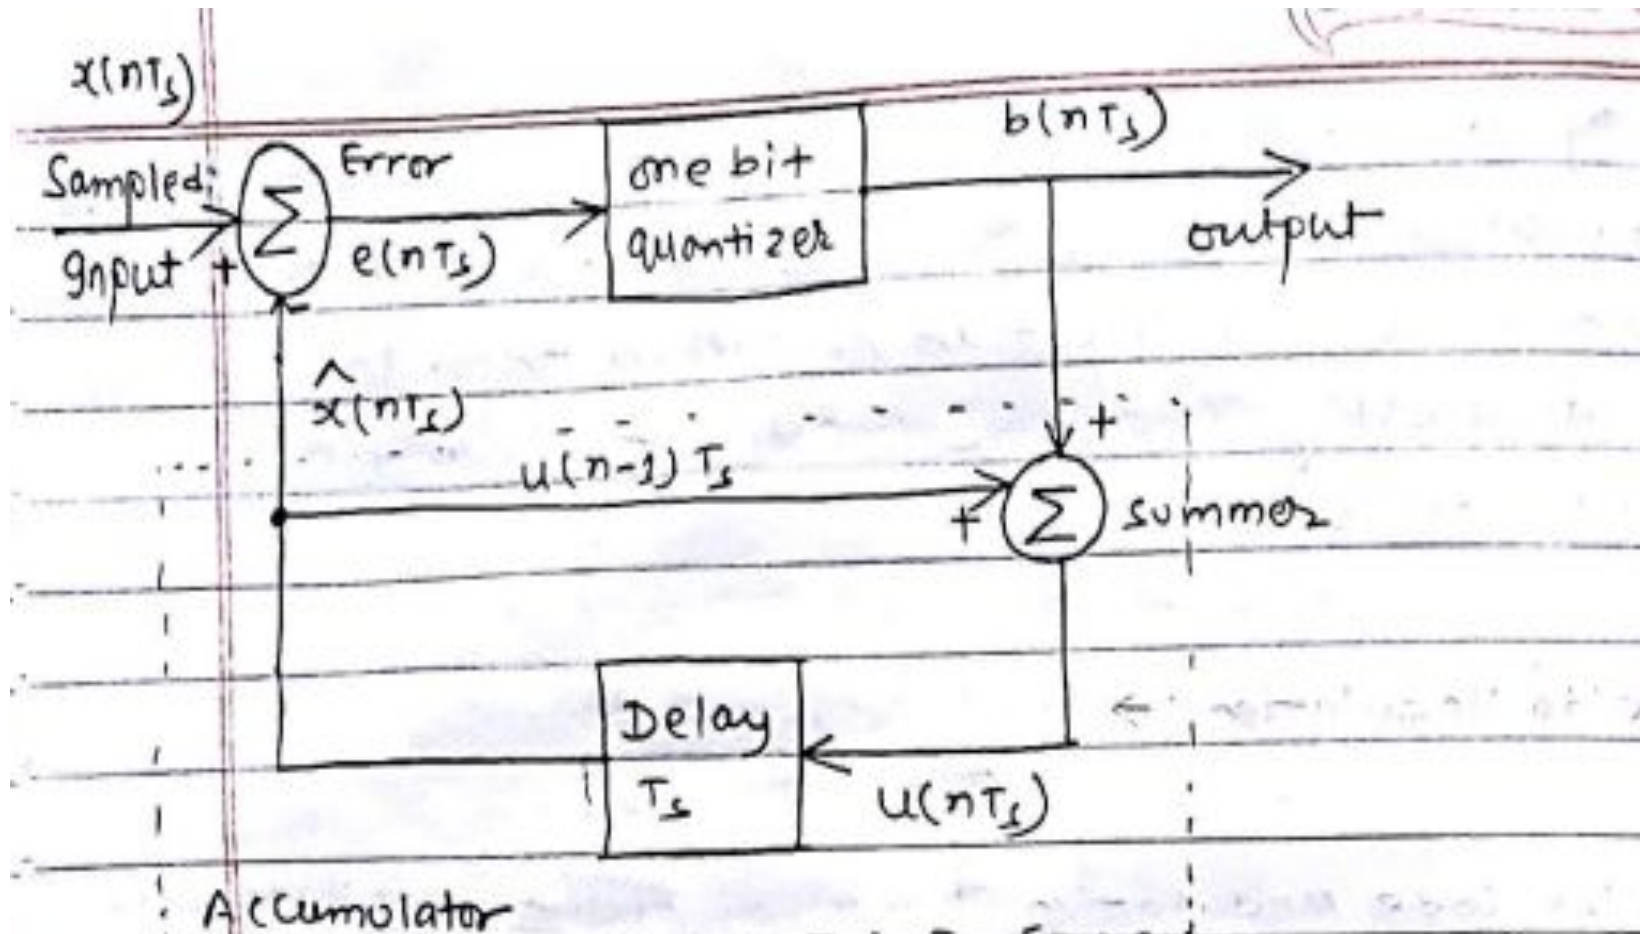 x(nTs)
Sampled
Input
+
Σ
-
Error
e(nTs)
one bit
quantizer
b(nTs)
output
x̂(nTs)
u(n-1)Ts
+
+
Σ
summer
Delay
Ts
u(nTs)
Accumulator